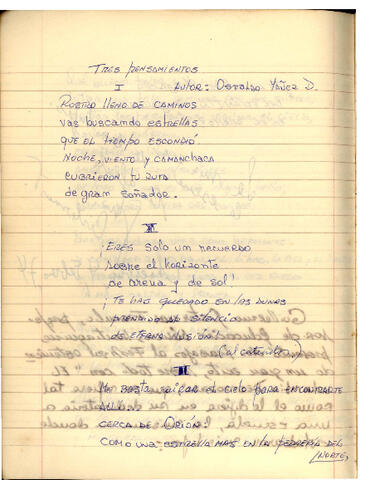 TRES PENSAMIENTOS
I AUTOR: Osvaldo Yáñez D.
ROSTRO LLENO DE CAMINOS
VAS BUSCANDO ESTRELLAS
QUE EL TIEMPO ESCONDIÓ.
NOCHE, VIENTO y CAMANCHACA
CUBRIERON TU RUTA
de GRAN SOÑADOR.
II
¡ERES SOLO UN RECUERDO
SOBRE EL HORIZONTE
de ARENA y de SOL!
¡TE HAS QUEDADO EN LAS DUNAS
SILENCIO
DE ETERNA ILUSIÓN!
III
ME BASTA MIRAR EL CIELO PARA ENCONTRARTE
ALLÍ
CERCA DE ORIÓN!
COMO UNA ESTRELLA MAS EN LA DEL
NORTE,